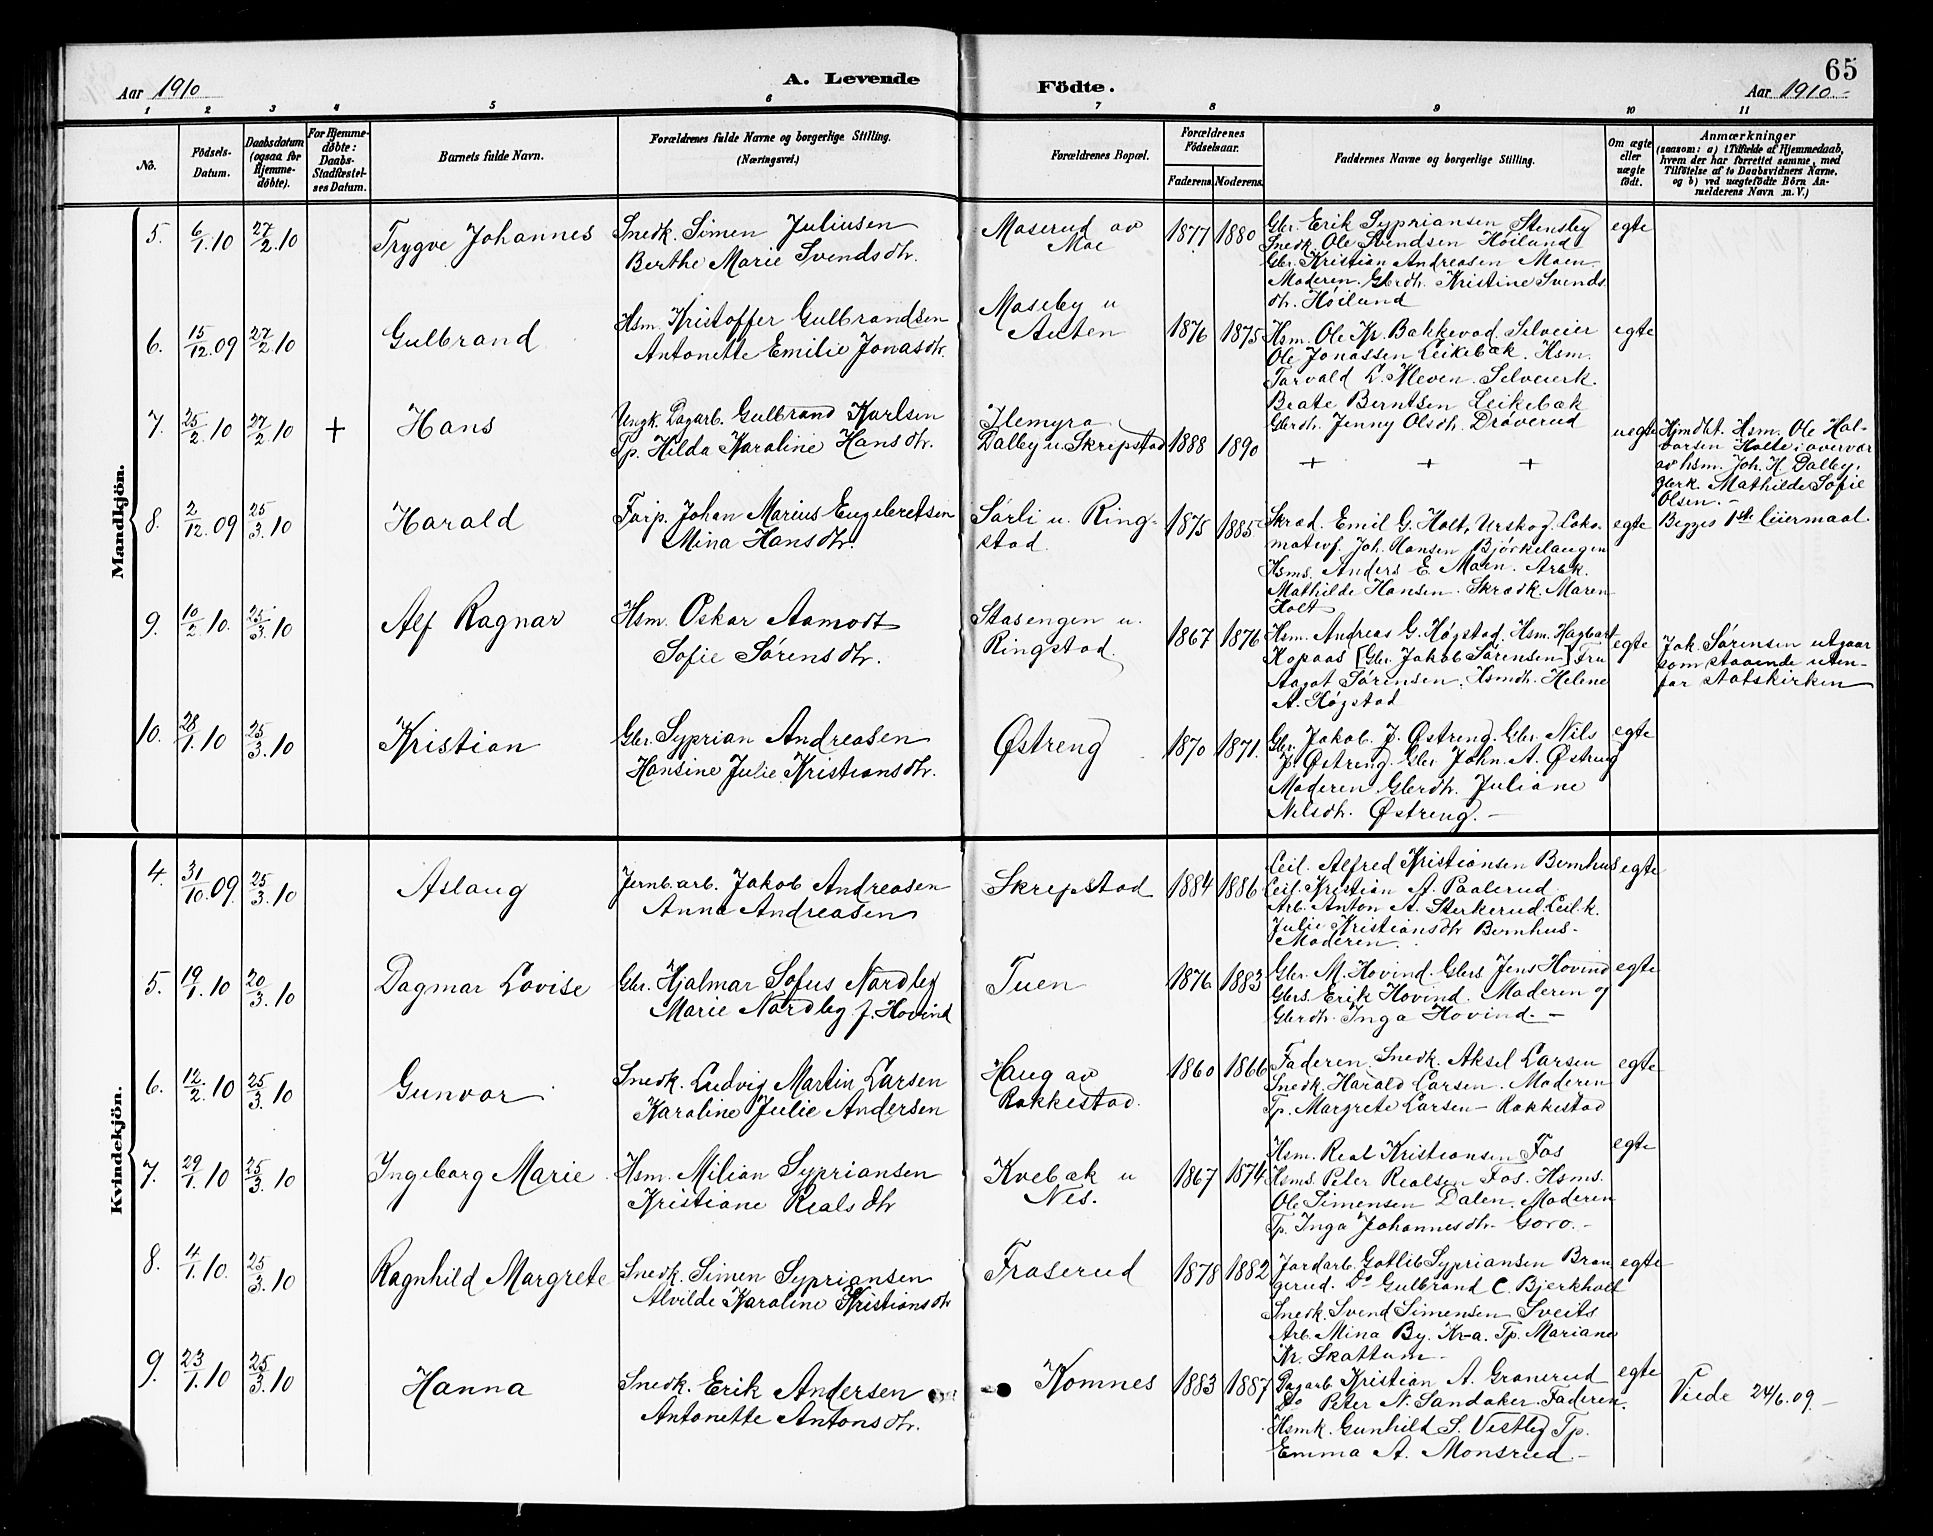 65
Aar 1910
A. Levende Födte.
Aar 1910
1 2 3 4 5 6 7 8 9 10 11
No.
Födsels-Datum.
Daabsdatum (ogsaa for Hjemme-döbte).
For Hjemme-döbte: Daabs-Stadfæstel-ses Datum.
Barnets fulde Navn.
Forældrenes fulde Navne og borgerlige Stilling.
(Næringsvei.)
Forældrenes Bopæl.
Forældrenes Födselsaar.
Faderens. Moderens.
Faddernes Navne og borgerlige Stilling.
Om ægte eller uægte födt.
Anmærkninger
(saasom: a) i Tilfælde af Hjemmedaab,
hvem der har forrettet samme, med
Tilföielse af to Daabsvidners Navne,
og b) ved uægtefödte Börn An-
melderens Navn m. V.)
Mandkjön.
5. 6/1.10 27/2.10 Trygve Johannes
Snedk. Simen Juliussen
Berthe Marie Svendsdtr.
Maserud av
Moe
1877 1880
Gbr. Erik Sypriansen Stensby
Snedk. Ole Svendsen Høiland
Gbr. Kristian Andreasen Moen
Moderen. Gbrdtr. Kristine Svends
dtr. Høiland
egte
6. 15/12.09 27/2.10 Gulbrand
Hsm. Kristoffer Gulbrandsen
Antonette Emilie Jonasdtr.
Maseby u
Auten
1876 1875
Hsm. Ole Kr. Bakkevad. Selveier
Ole Jonassen Leikebæk. Hsm.
Torvald L. Kleven. Selveierk.
Beate Berntsen Leikebæk
Gbrdtr. Jenny Olsdtr. Drøverud
egte
7. 25/2.10 27/2.10 + Hans
Ungk. Dagarb. Gulbrand Karlsen
Tp. Hilda Karoline Hansdtr.
Ilemyra
Dalby u. Skrepstad
1888 1890
+ + +
uegte
Hjmdbt. Hsm. Ole Hal-
vorsen Holte i overvær
av hsm. Joh. H. Dalby,
gbrk. Mathilde Sofie
Olsen.-
Begges 1ste leiermaal.
8. 2/12.09 25/3.10 Harald
Forp. Johan Marius Engebretsen
Mina Hansdtr.
Sørli u. Ring-
stad.
1875 1885
Skræd. Emil G. Holt, Urskog. Loko-
motivf. Joh. Hansen Bjørkelangen
Hsms. Anders E. Moen. Arbk.
Mathilde Hansen. Skrædk. Maren
Holt
egte
9. 10/2.10. 25/3.10 Alf Ragnar
Hsm. Oskar Aamodt
Sofie Sørensdtr.
Stasengen u.
Ringstad.
1867 1876
Hsm. Andreas G. Høgstad. Hsm. Hagbart
Kopaas [Gbr. Jakob Sørensen] Fru
Aagot Sørensen. Hsmdtr. Helene
A. Høgstad
egte
Jak. Sørensen utgaar
som staaende uten-
for statskirken
10. 28/1.10 25/3.10 Kristian
Gbr. Syprian Andreasen
Hansine Julie Kristiansdtr.
Østreng
1870 1871.
Gbr. Jakob J. Østreng. Gbr. Nils
J. Østreng. Gbr. John. A. Østreng
Moderen. Gbrdtr. Juliane
Nilsdtr. Østreng.-
egte
Kvindekjön.
4. 31/10.09. 25/3.10 Aslaug
Jernb.arb. Jakob Andreasen
Anna Andreasen
Skrepstad
1884 1886
Leil. Alfred Kristiansen Bernhus
Leil. Kristian A. Paalerud
Arb. Anton A. Sterkerud. Leil.k.
Julie Kristiansdtr Bernhus-
Moderen.
egte
5. 19/1.10 20/3.10 Dagmar Lovise
Gbr. Hjalmar Sofus Nordby
Marie Nordby f. Hovind
Tuen
1876 1883
Gbr. M. Hovind. Gbrs. Jens Hovind
Gbrs. Erik Hovind. Moderen og
Gbrdtr. Inga Hovind.-
egte
6. 12/2.10 25/3.10 Gunvor
Snedk. Ludvig Martin Larsen
Karoline Julie Andersen
Haug av
Rakkestad.
1860 1866
Faderen. Snedk. Aksel Larsen
Snedk. Harald Larsen. Moderen
Tp. Margrete Larsen - Rakkestad
egte
7. 29/1.10 25/3.10 Ingeborg Marie
Hsm. Milian Sypriansen
Kristiane Realsdtr
Kvebæk u
Nes.
1867 1874
Hsm. Real Kristiansen Fos
Hsms. Peter Realsen Fos. Hsms.
Ole Simensen Dalen. Moderen
Tp. Inga Johannesdtr. Goro.-
egte
8. 4/1.10. 25/3.10 Ragnhild Margrete
Snedk. Simen Sypriansen
Alvilde Karoline Kristiansdtr
Fraserud
1878 1882
Jordarb. Gotlib Sypriansen Bran
gerud. Do Gulbrand C. Bjerkholt
Snedk. Svend Simensen Sveits
Arb. Mina By. Kr-a. Tp. Mariane
Kr. Skattum-
egte
9. 23/1.10 25/3.10 Hanna
Snedk. Erik Andersen
Antonette Antonsdtr.
Komnes
1883 1887
Dagarb. Kristian A. Granerud
Do Peter N. Sandaker. Faderen.
Hsmk. Gunhild S. Vestby Tp.
Emma A. Monsrud-
egte
Viede 24/6.09.-